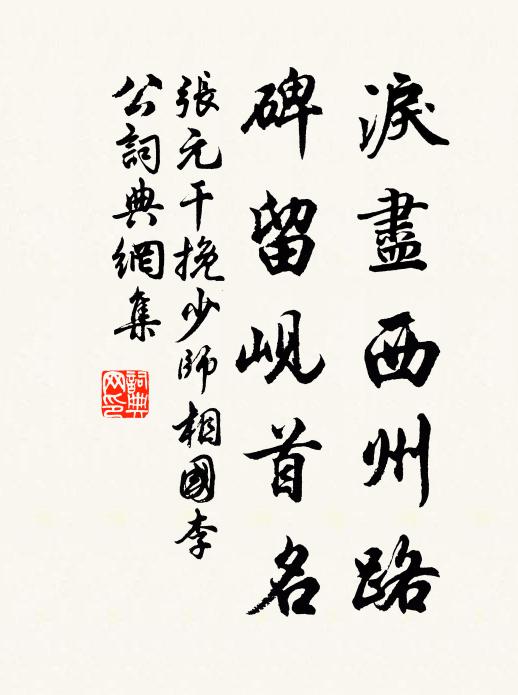 淚盡西州路
碑留峴首名
張元干挽少師相國李
公詞典網集
詞典
网印